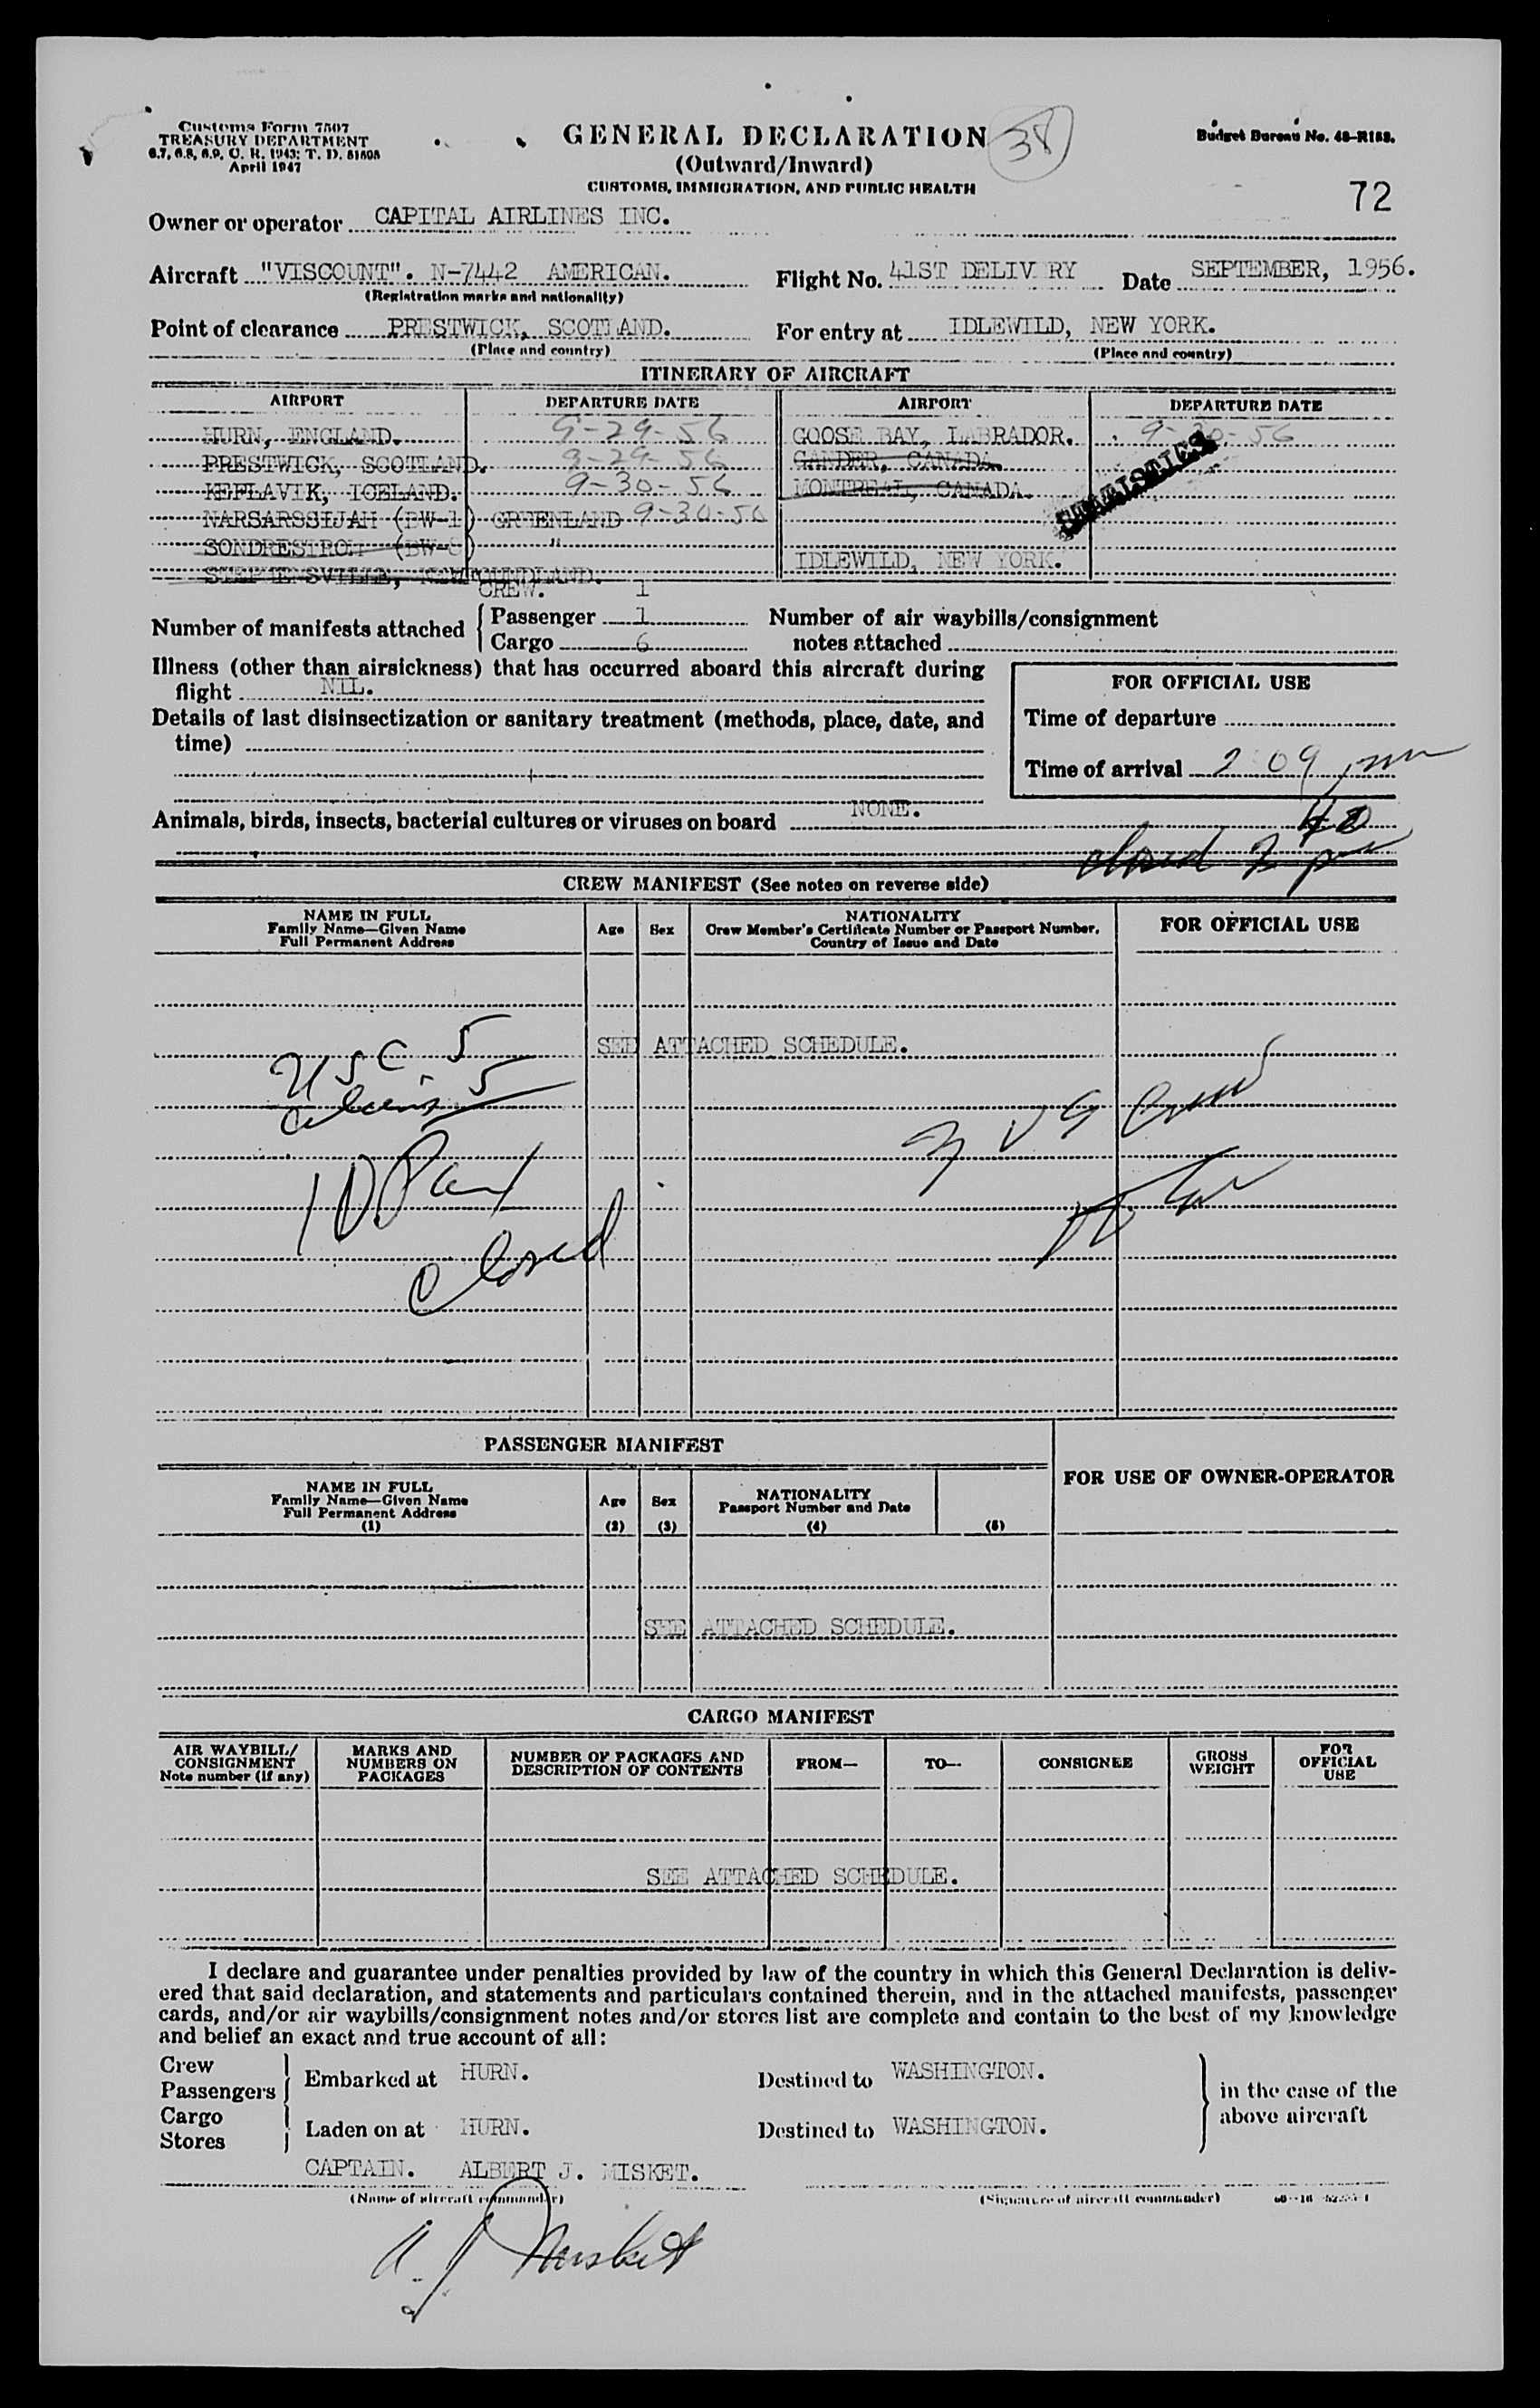 Customs Form 7507
TREASURY DEPARTMENT
6.7, 6.8, 6.9, C. R. 1943; T. D. 51595
April 1947
GENERAL DECLARATION
38
(Outward/Inward)
CUSTOMS, IMMIGRATION, AND PUBLIC HEALTH
Budget Bureau No. 48-R153.
72
Owner or operator CAPITAL AIRLINES INC.
Aircraft "VISCOUNT". N-7442 AMERICAN. Flight No. 41ST DELIV RY Date SEPTEMBER, 1956.
(Registration marks and nationality)
Point of clearance PRESTWICK, SCOTLAND. For entry at IDLEWILD, NEW YORK.
(Place and country) (Place and country)
ITINERARY OF AIRCRAFT
AIRPORT DEPARTURE DATE AIRPORT DEPARTURE DATE
HURN, ENGLAND. 9-29-56 GOOSE BAY, LABRADOR. 9-30-56
PRESTWICK, SCOTLAND. 9-29-56 GANDER, CANADA.
KEFLAVIK, ICELAND. 9-30-56 MONTREAL, CANADA. STATISTICS
NARSARSSUAH (BW-1) GREENLAND 9-30-56
SONDRESTROM (BW-8) "
IDLEWILD, NEW YORK.
STEPHENSVILLE, NEWFOUNDLAND.
CREW. 1
Number of manifests attached Passenger 1 Number of air waybills/consignment
Cargo 6 notes attached
Illness (other than airsickness) that has occurred aboard this aircraft during
flight NIL.
FOR OFFICIAL USE
Details of last disinsectization or sanitary treatment (methods, place, date, and
time)
Time of departure
Time of arrival 2 09 pm
Animals, birds, insects, bacterial cultures or viruses on board NONE.
closed
CREW MANIFEST (See notes on reverse side)
NAME IN FULL
Family Name—Given Name
Full Permanent Address
Age Sex
NATIONALITY
Crew Member's Certificate Number or Passport Number,
Country of Issue and Date
FOR OFFICIAL USE
SEE ATTACHED SCHEDULE.
USC 5
aliens 5
10 Pax
closed
PASSENGER MANIFEST
FOR USE OF OWNER-OPERATOR
NAME IN FULL
Family Name—Given Name
Full Permanent Address
(1)
Age
(2)
Sex
(3)
NATIONALITY
Passport Number and Date
(4)
(5)
SEE ATTACHED SCHEDULE.
CARGO MANIFEST
AIR WAYBILL/
CONSIGNMENT
Note number (if any)
MARKS AND
NUMBERS ON
PACKAGES
NUMBER OF PACKAGES AND
DESCRIPTION OF CONTENTS
FROM—
TO—
CONSIGNEE
GROSS
WEIGHT
FOR
OFFICIAL
USE
SEE ATTACHED SCHEDULE.
I declare and guarantee under penalties provided by law of the country in which this General Declaration is deliv-
ered that said declaration, and statements and particulars contained therein, and in the attached manifests, passenger
cards, and/or air waybills/consignment notes and/or stores list are complete and contain to the best of my knowledge
and belief an exact and true account of all:
Crew
Passengers
Embarked at HURN. Destined to WASHINGTON.
in the case of the
above aircraft
Cargo
Stores
Laden on at HURN. Destined to WASHINGTON.
CAPTAIN. ALBERT J. MISKET.
(Name of aircraft commander) (Signature of aircraft commander)
A. J. Misket